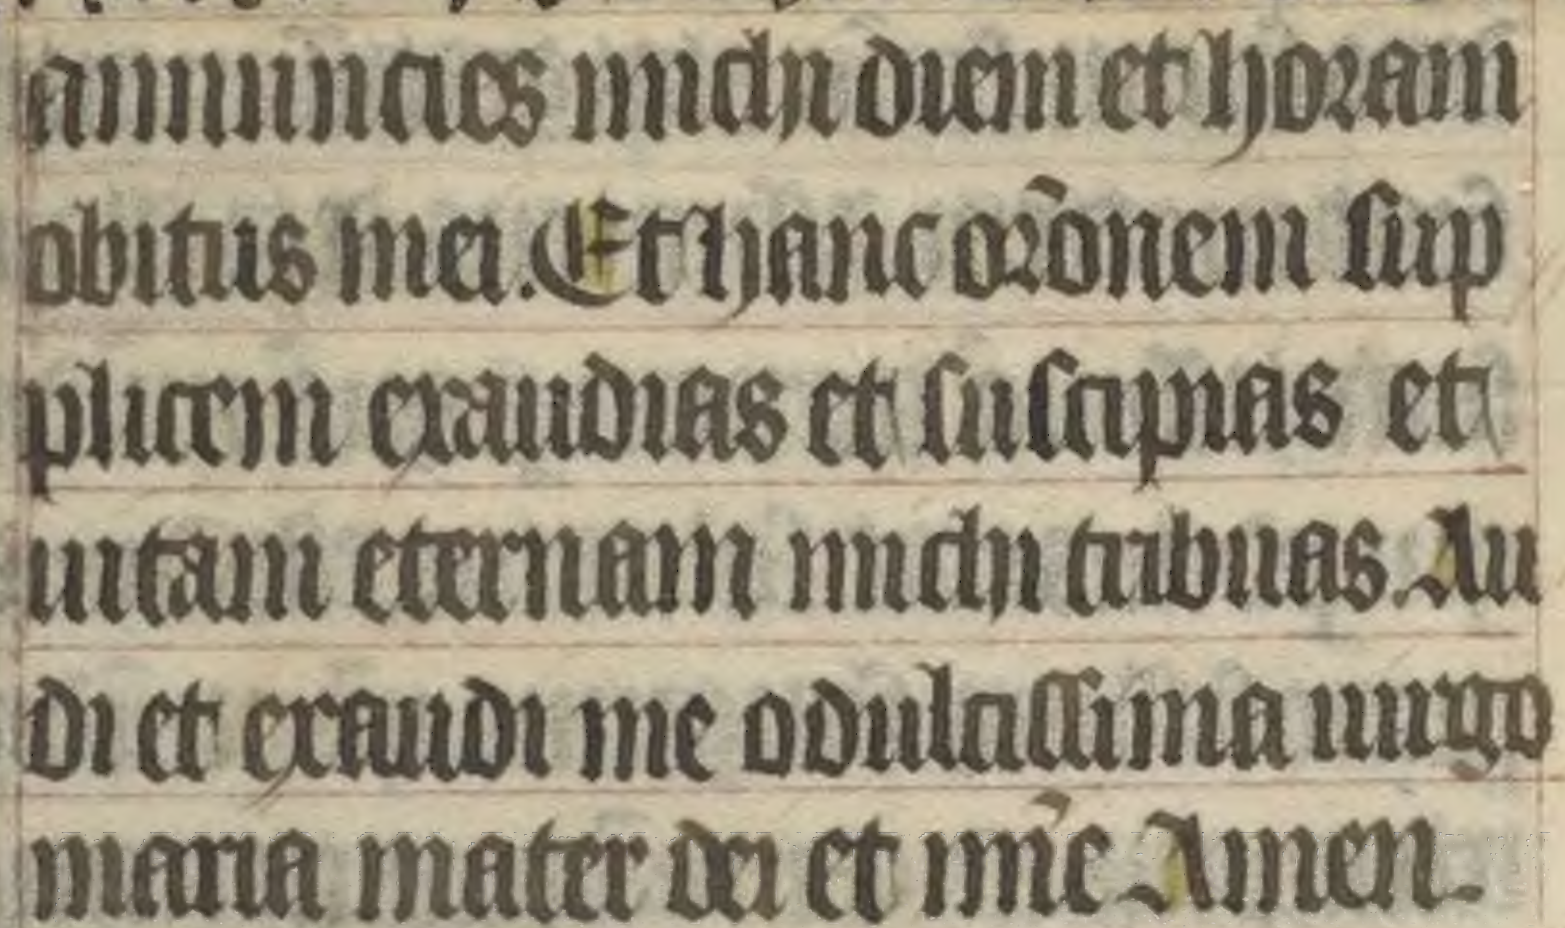 annuncies michi diem et horam
obitus mei. Et hanc or̃onem sup
plicem exaudias et suscipias et
uitam eternam michi tribuas. Au
di et exaudi me o dulcissima uirgo
maria mater dei et mi̅e Amen